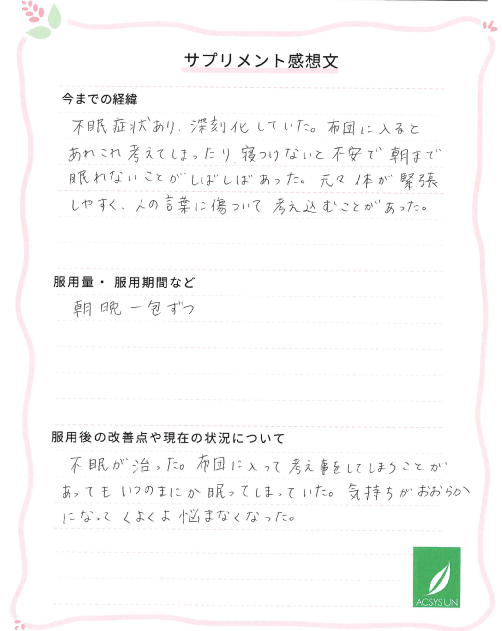 サプリメント感想文
今までの経緯
不眠症状あり、深刻化していた。布団に入ると
あれこれ考えてしまったり 寝つけないと不安で 朝まで
眠れないことがしばしばあった。元々 体が緊張
しやすく、人の言葉に傷ついて 考え込むことがあった。
服用量・服用期間など
朝晩 一包ずつ
服用後の改善点や現在の状況について
不眠が治った。布団に入って考え事をしてしまうことが
あってもいつのまにか眠ってしまっていた。気持ちがおおらか
になって くよくよ悩まなくなった。
ACSYSUN